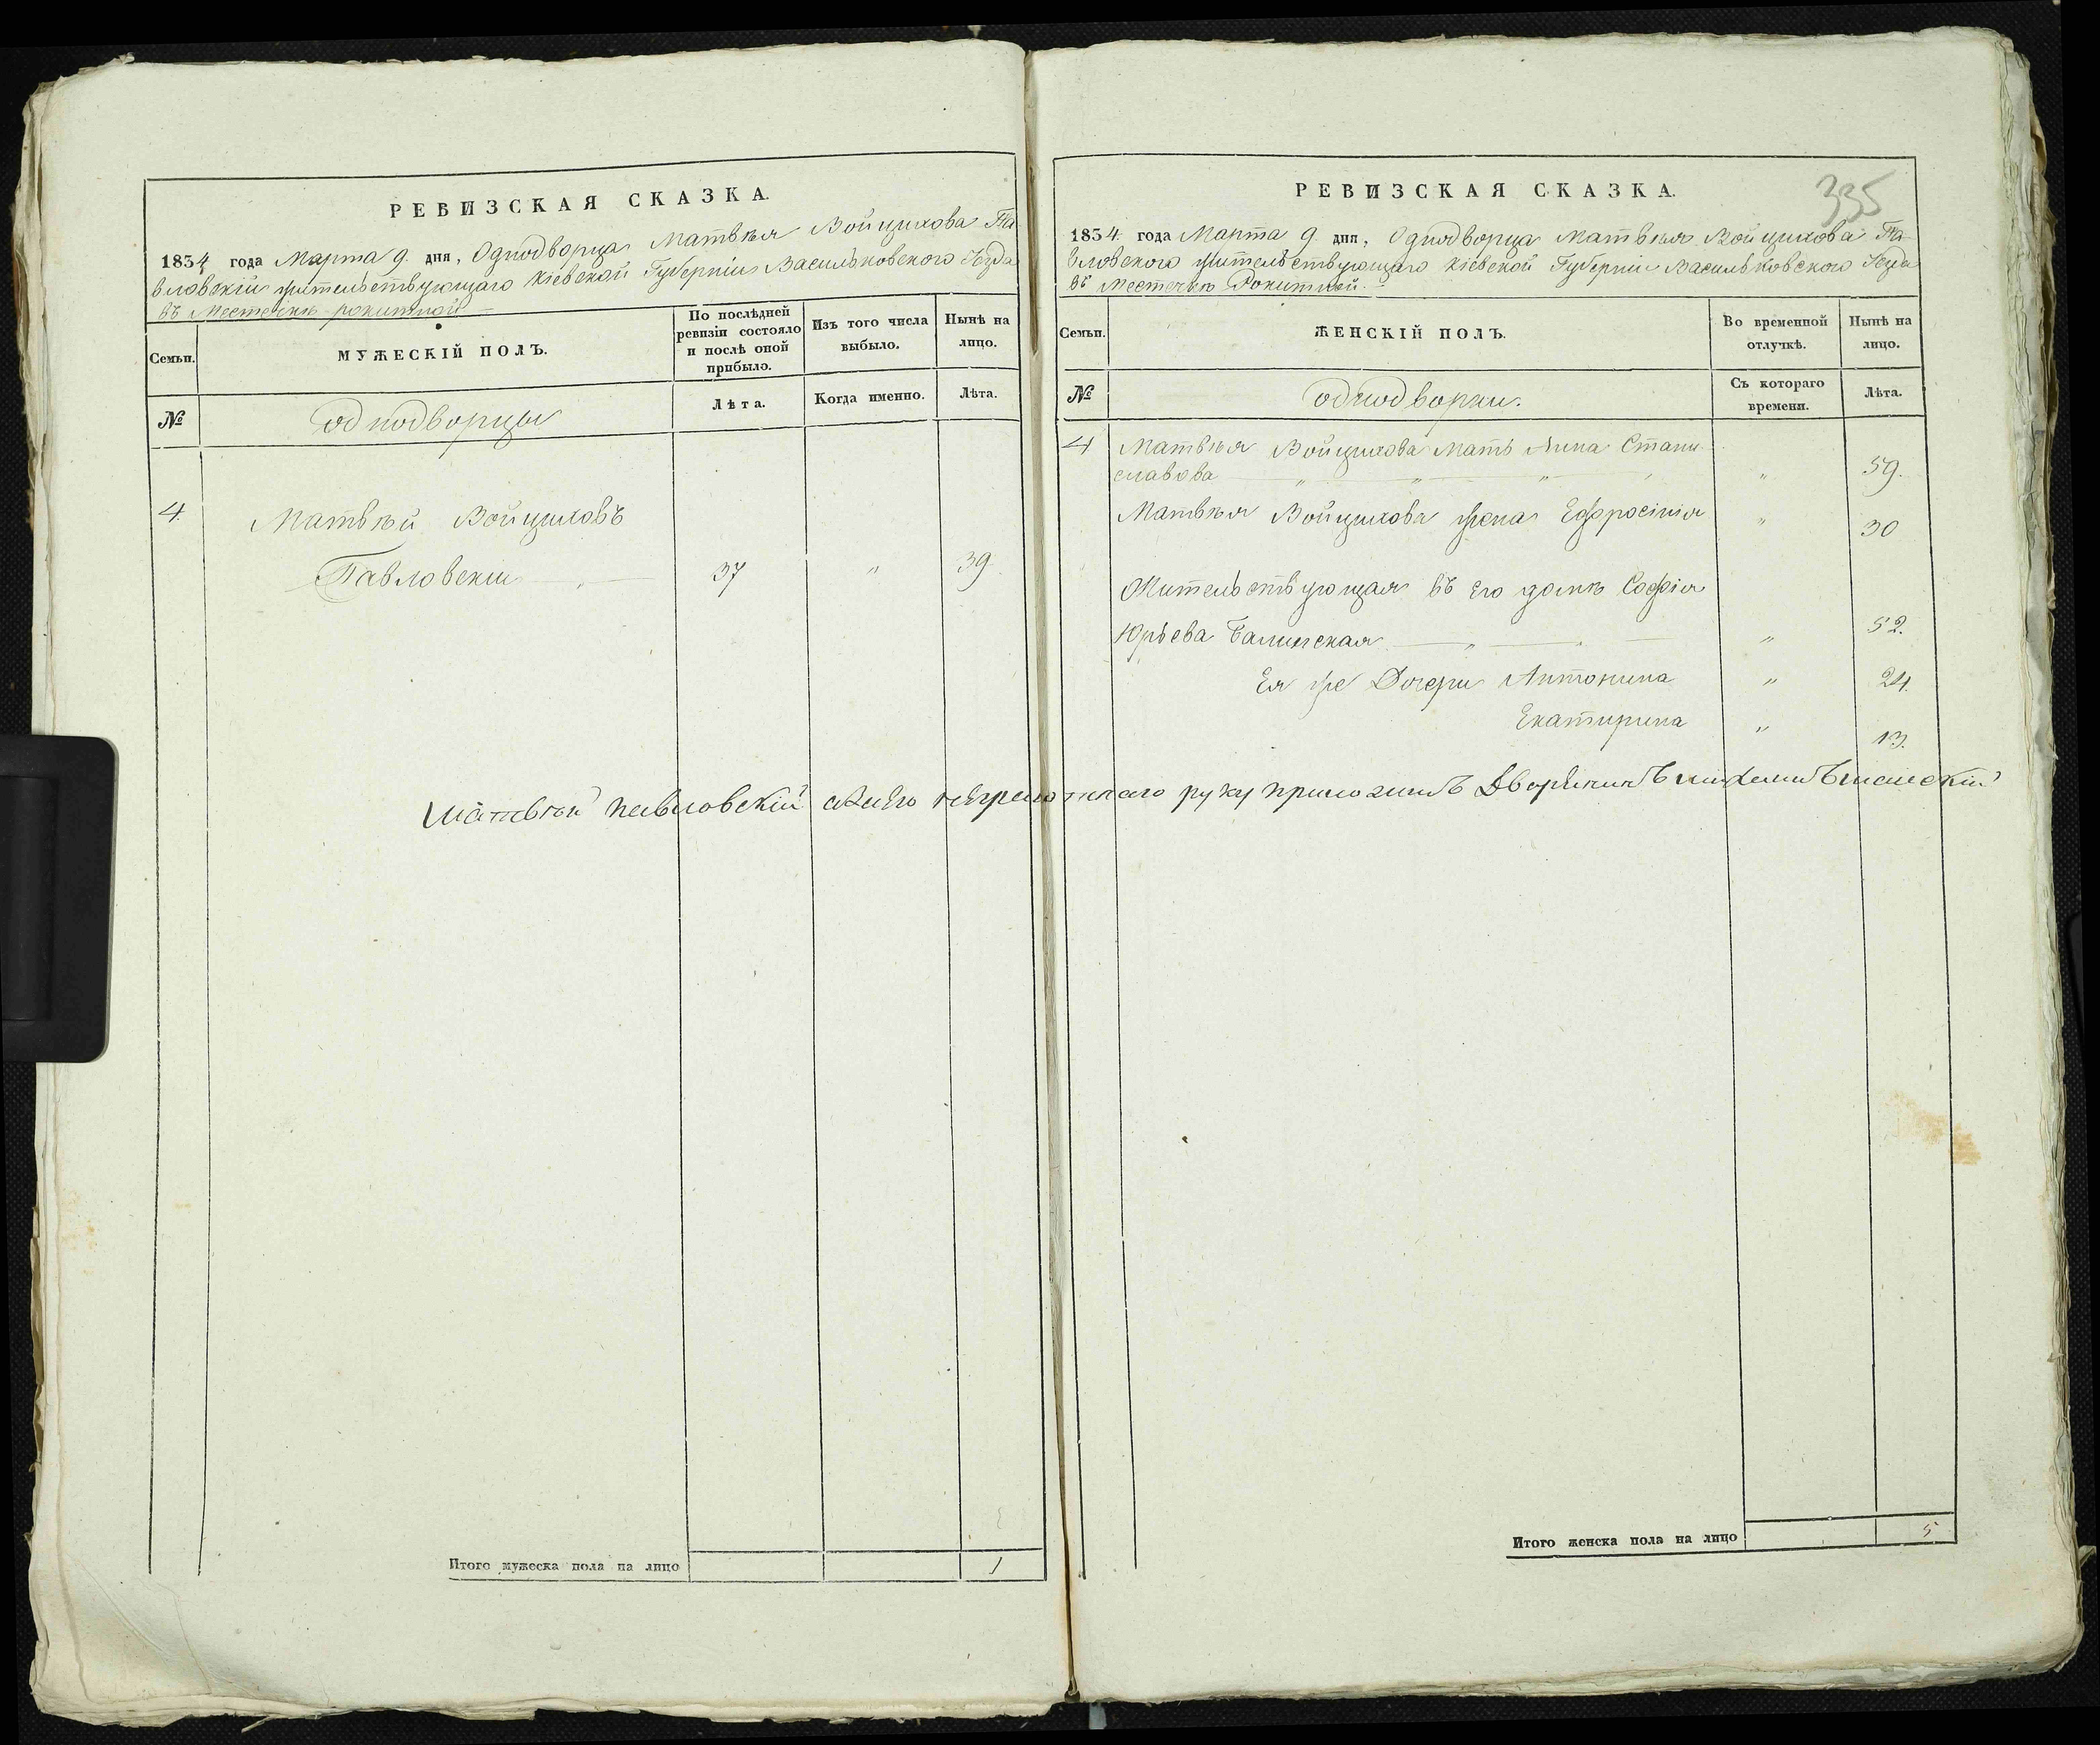 РЕВИЗСКАЯ СКАЗКА.
1834 года Марта 9. дня, Однодворца Матвѣя Войцихова Па
вловскій жительствующаго Кіевской Губерніи Васильковского Уѣзда
въ Местечкѣ рокитной
Семьи.
МУЖЕСКІЙ ПОЛЪ.
По послѣдней
ревизіи состояло
и послѣ оной
прибыло.
Изъ того числа
выбыло.
Нынѣ на
лицо.
№
однодворцы
Лѣта.
Когда именно.
Лѣта.
4.
Матвѣй Войциховъ
Павловскій " 37 " 39
Итого мужеска пола на лицо 1
335
РЕВИЗСКАЯ СКАЗКА.
1834. года Марта 9 дня, Однодворца Матвѣя Войцихова Па
вловского жительствующаго Кіевской Губерніи Васильковского Уѣзда
въ Местечкѣ Рокитной.
Семьи.
ЖЕНСКІЙ ПОЛЪ.
Во временной
отлучкѣ.
Нынѣ на
лицо.
№
однодворки.
Съ котораго
времени.
Лѣта.
4 Матвѣя Войцихова Мать Анна Стани
славова " " " " 59.
Матвѣя Войцихова жена Ефросінія " 30
Жительствующая въ его домѣ Софія
Юрьева " " 52.
Ея же Дочери Антонина " 24.
Екатирина " 13.
Матвѣй павловскій аѣего неграмотнаго руку приложилъ Дворянинъ
Итого женска пола на лицо 5